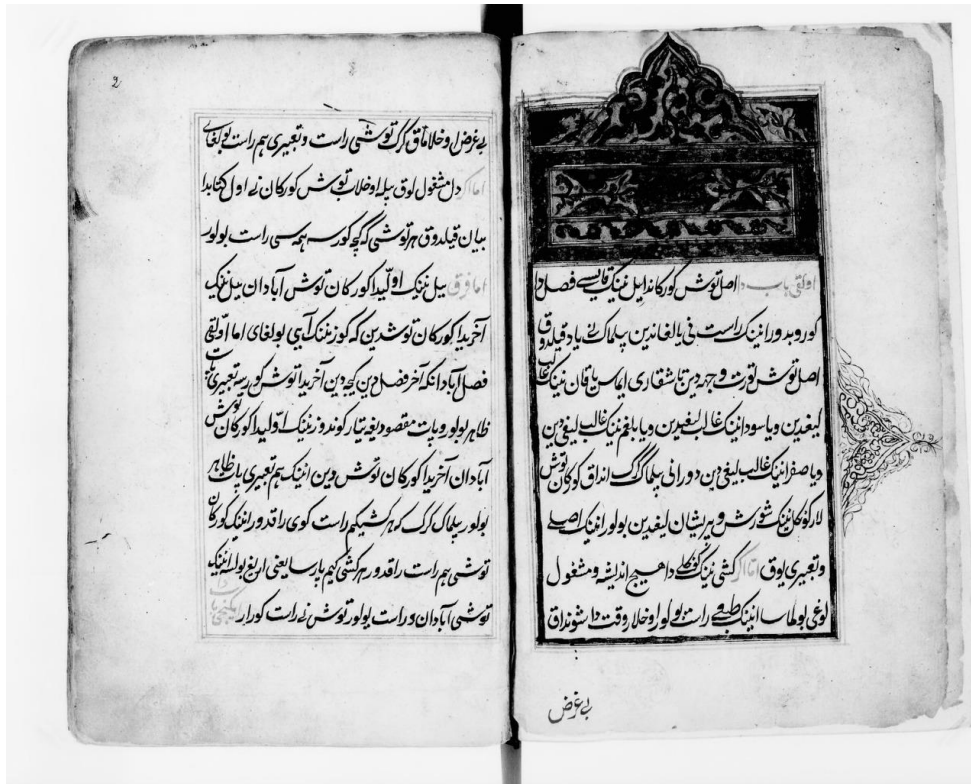 اولقی باب دا اصل توش کورکاندا ایل نینک قایسے فصل دا
کوروبدور انینک راست فی یالغاندین پیلماک نی یاد قیلدوق
اصل توش تورت وجهه دین تاشقاری ایماس یا قان نینک غالب
لیغدین و یا سودا نینک غالب لیغدین و یا بلغم نینک غالب لیغی دین
و یا صفرا نینک غالب لیغی دین دورانی پیلماک کرک انداق کورکان توش
لار کونکل نینک شورش و پریشان لیغدین بولور انینک اصلے
و تعبیری یوق اما اکر کشی نینک کونکلی دا هیچ اندیشه و مشغول
لوغی بولماسا انینک طبعی راست بولور اوخلار وقت دا شونداق
بی غرض
2
بی غرض اوخلاماق کرک توشی راست و تعبیری هم راست بولغای
اما اکر دل مشغول لوق پیله اوخلاب توش کورکان نے اول کتابدا
بیان قیلدوق هر توشی که کیچه کورسه همه سی راست بولور
اما فرق ییل نینک اولیدا کورکان توش آبادان ییل نینک
آخریدا کورکان توشدین که کوز نینک آیی بولغای اما اولقی
فصل آبادانکه آخر فصل دین کیچه دین آخریدا توش کورسه تعبیری تیت
ظاهر بولور و یات مقصودیغه تیار کوندوز نینک اولیدا کورکان توش
آبادان آخریدا کورکان توش دین انینک هم تعبیری یات ظاهر
بولور پیلماک کرک که هر کشیکیم راست کوی راقدور انینک کورکان
توشی هم راست راقدور هر کشی کیم پارسا یعنی اریغ بولسه انینک
توشی آبادان و راست بولور توش نے راست کورار